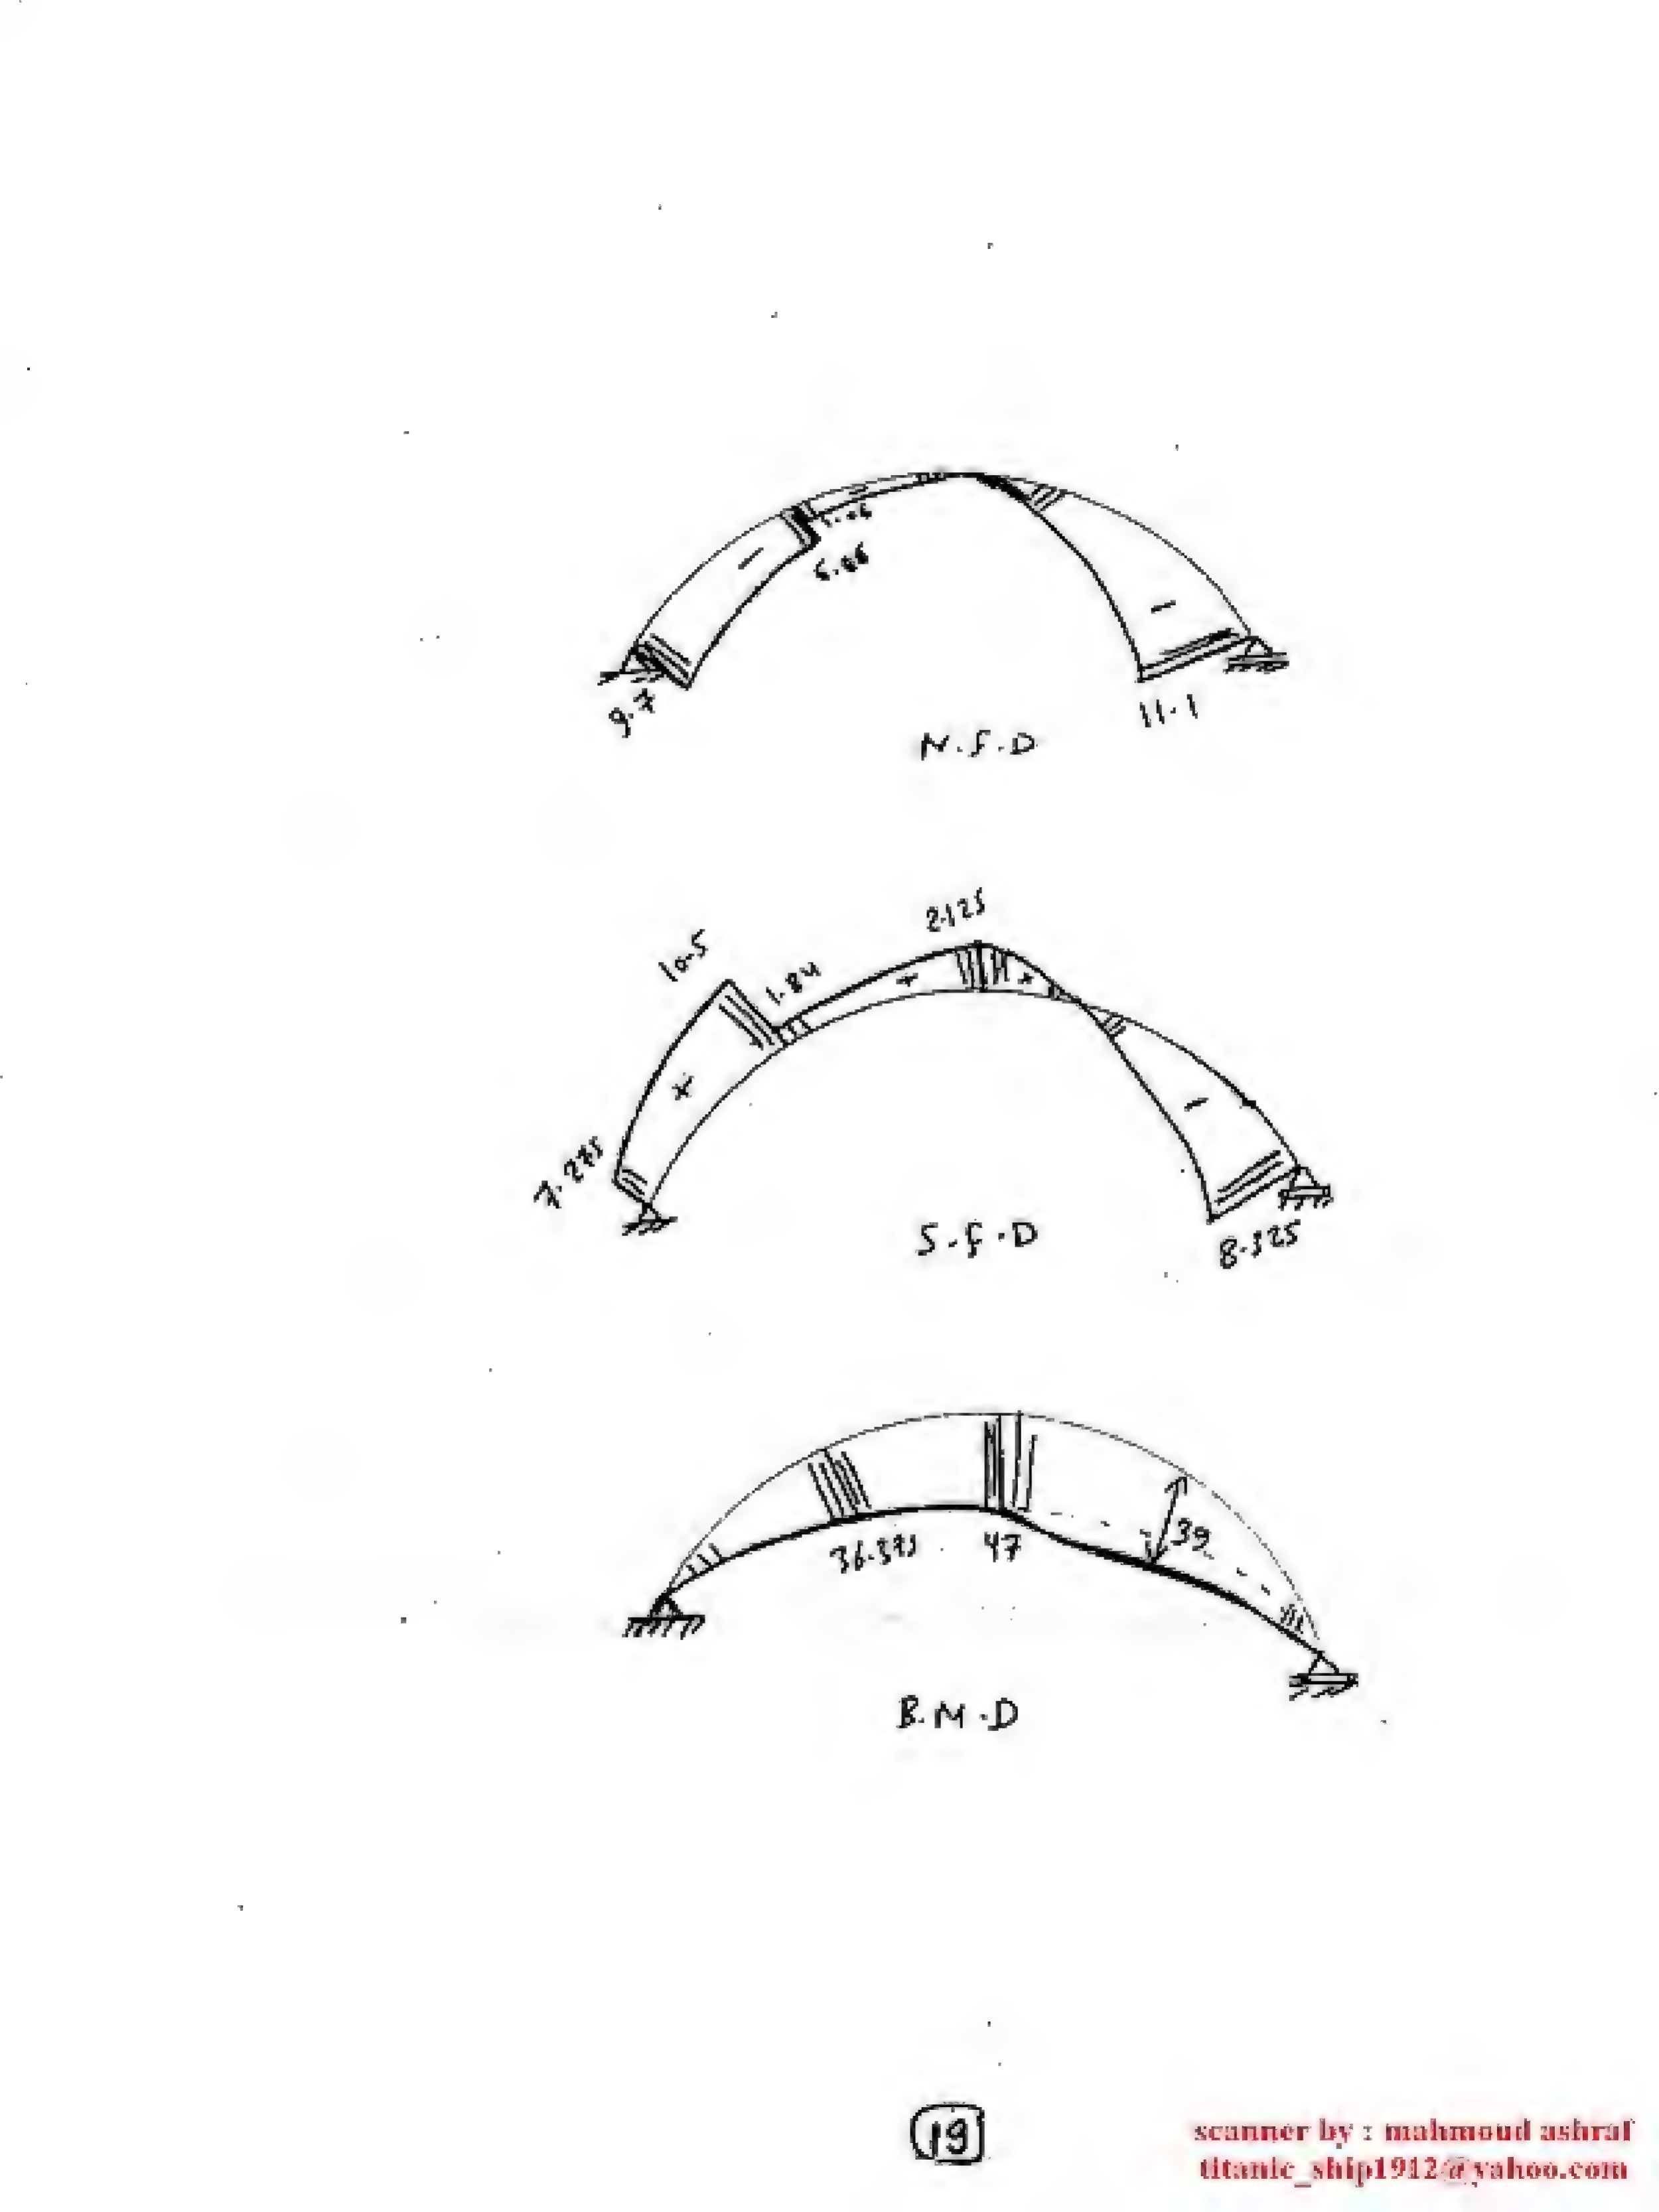 6.06
9.7
11.1
N.F.D
2.125
10.5
1.84
7.275
S.F.D
8.325
39
36.375
47
B.M.D
19
scanner by : mahmoud ashraf
titanic_ship1912@yahoo.com